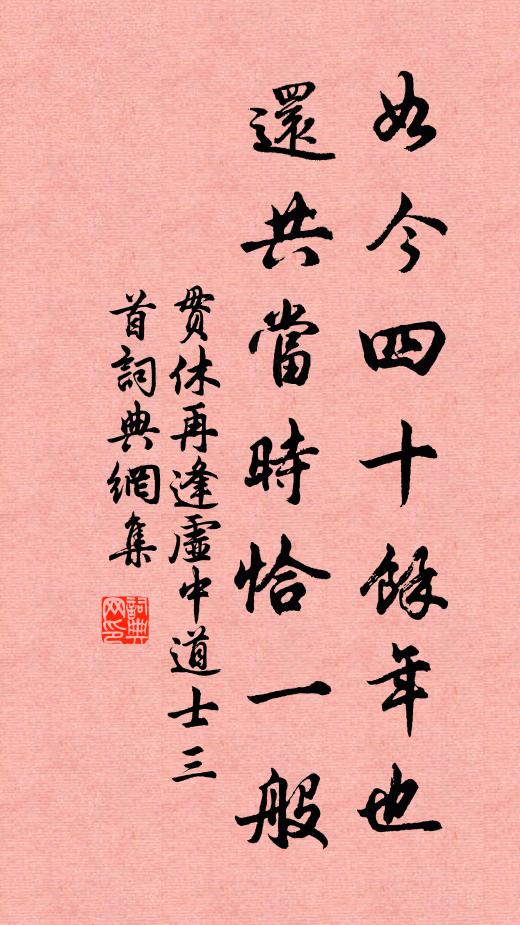 如今四十餘年也
還共當時恰一般
貫休再逢虛中道士三
首詞典網集
詞典網印